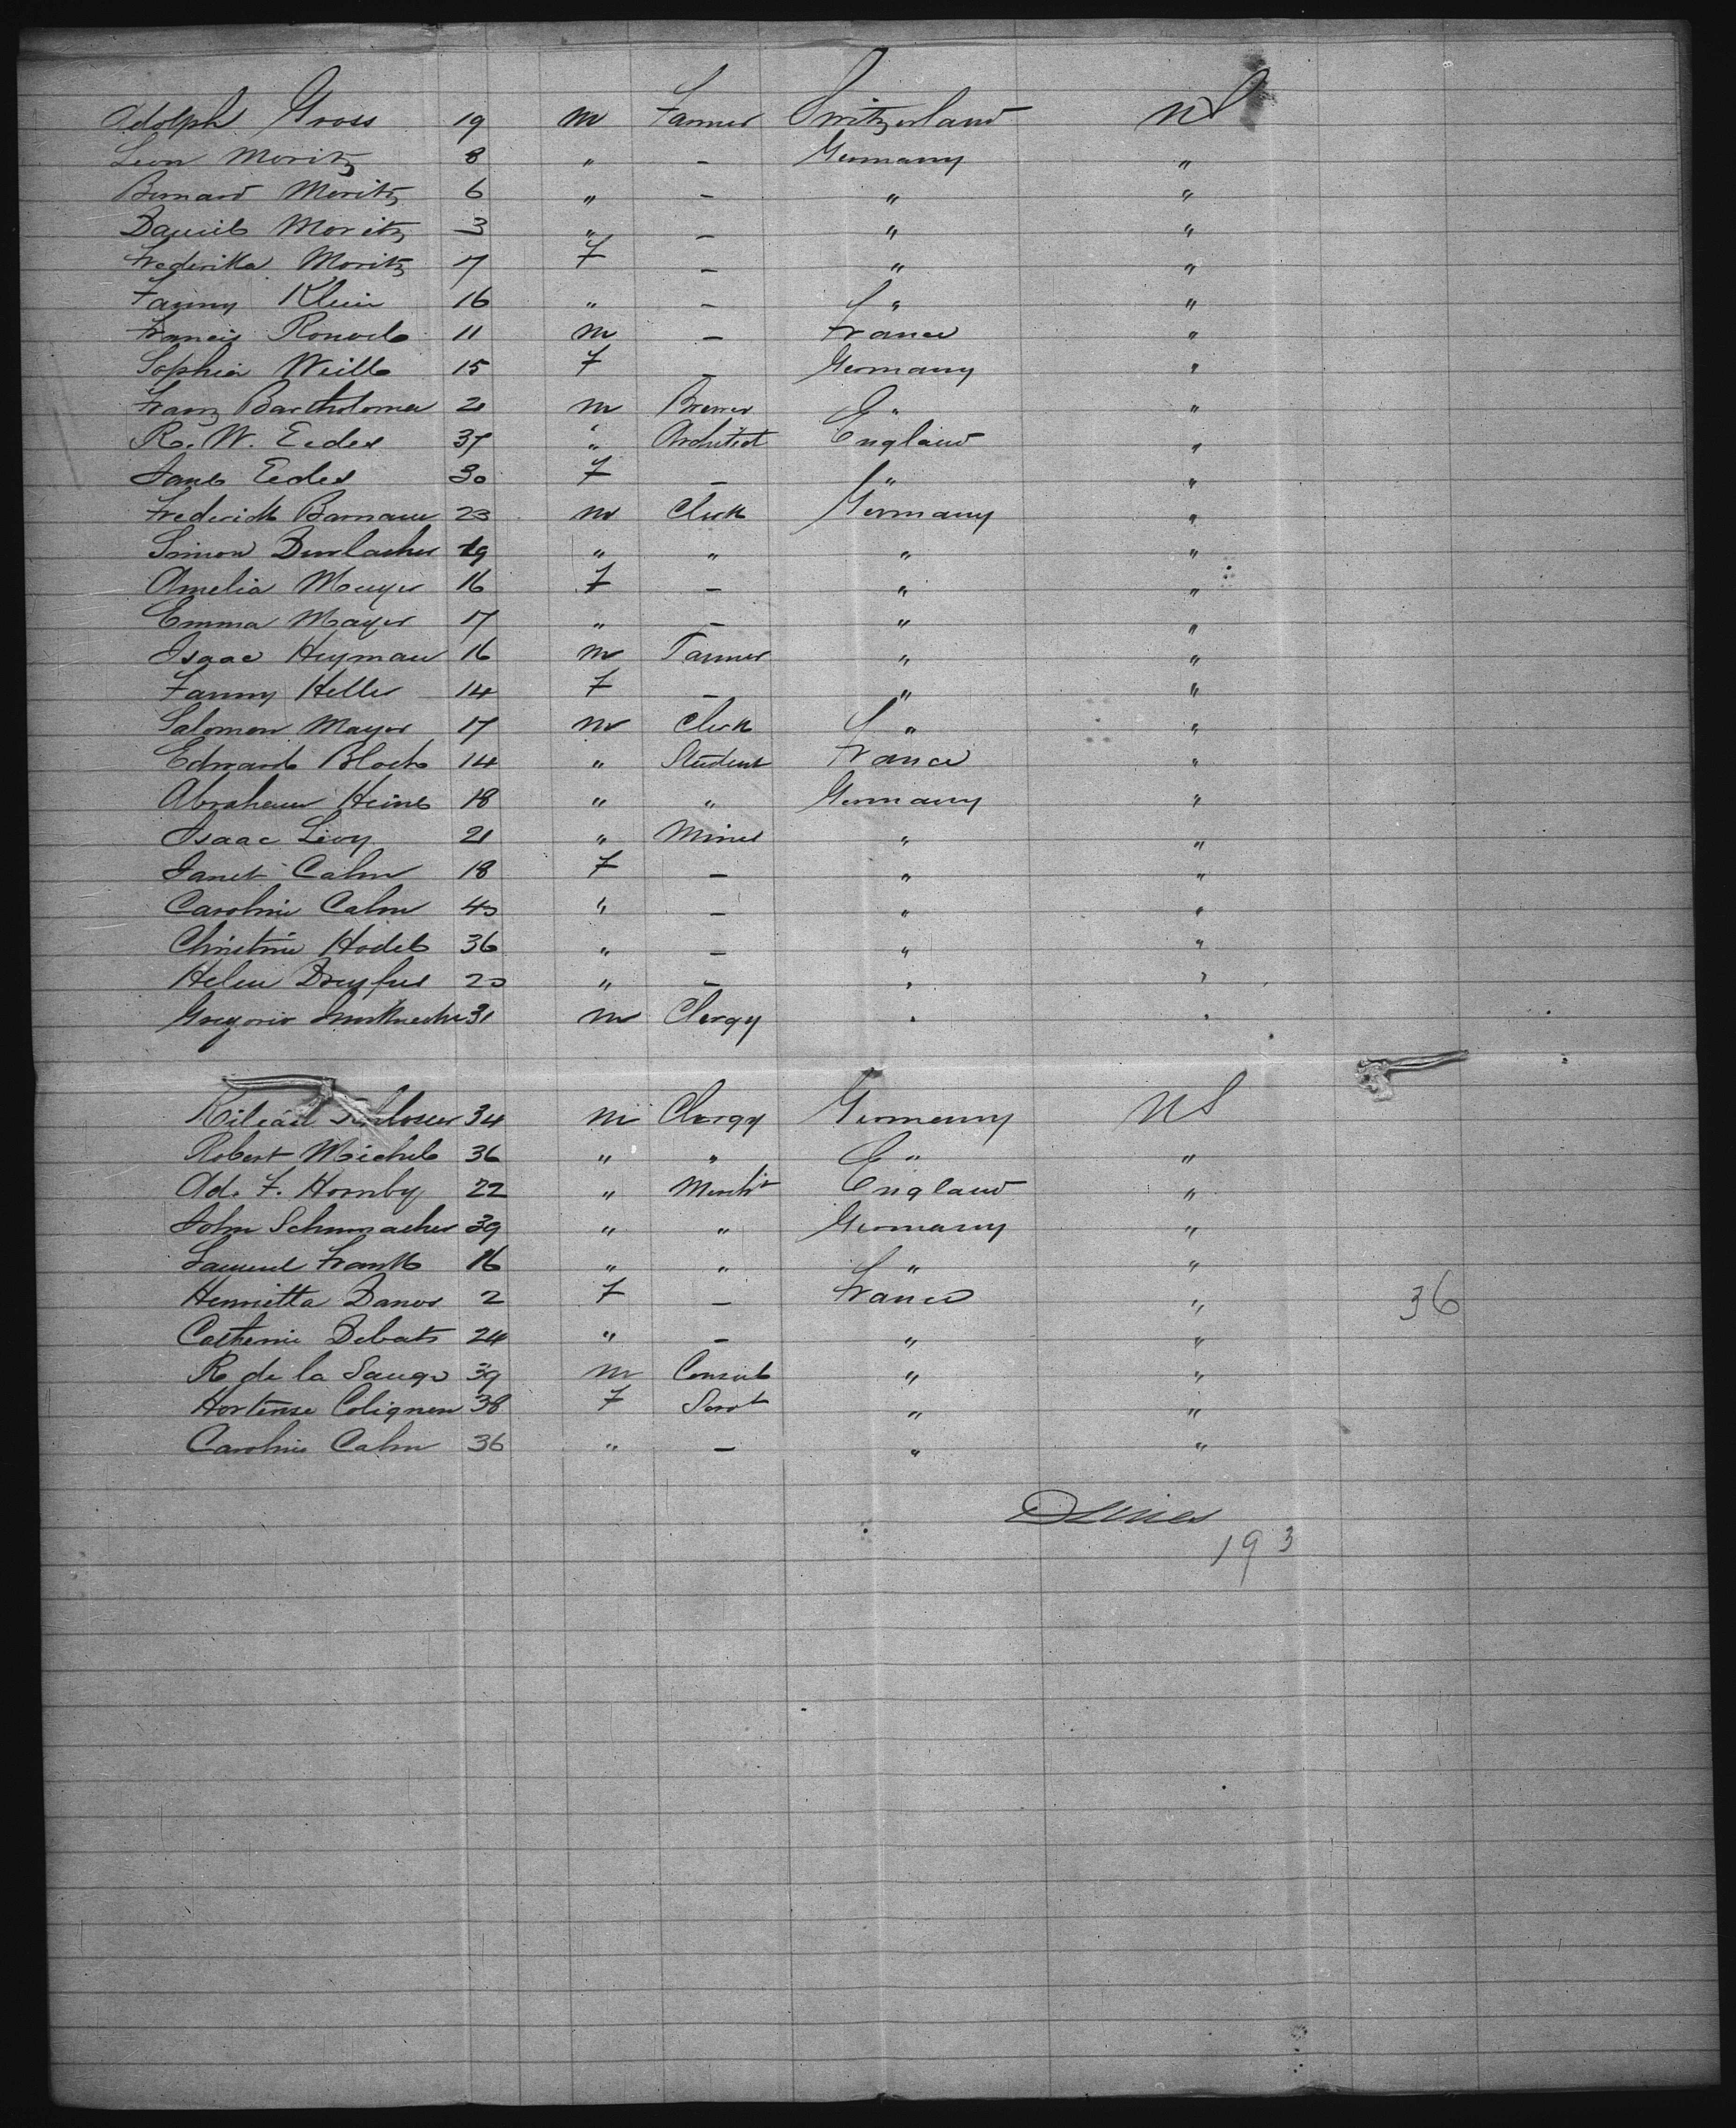 Adolph Gross 19 m Farmer Switzerland US
Leon Moritz 8 " - Germany "
Bernard Moritz 6 " - " "
Daniel Moritz 3 " - " "
Frederika Moritz 17 F - " "
Fanny Klein 16 " - " "
Francis 11 m - France "
Sophia Weill 15 F - Germany "
Franz Bartholomer 21 m Brewer " "
R. W. Eedes 37 " Architect England "
Jane Eedes 30 F - " "
Frederick 23 m Clerk Germany "
Simon Durlacher 19 " " " "
Amelia Meyer 16 F - " "
Emma Mayer 17 " - " "
Isaac Heyman 16 m Farmer " "
Fanny Heller 14 F - " "
Salomon Mayor 17 m Clerk " "
Edward Bloch 14 " Student France "
Abraham Heine 18 " " Germany "
Isaac Levy 21 " Miner " "
Janet Cahn 18 F - " "
Caroline Cahn 40 " - " "
Christine Hodel 36 " - " "
Helen Dreyfus 20 " - " "
Gregorio 31 m Clergy " "
Kilean 34 m Clergy Germany US
Robert Michel 36 " " " "
Ad. F. Hornby 22 " Mercht England "
John Schumacher 39 " " Germany "
Samuel Frank 16 " " " "
Henrietta Danos 2 F - France " 36
Catherine Debats 24 " - " "
R de la Sauge 39 m Consul " "
Hortense Colignon 38 F Servt " "
Caroline Cahn 36 " - " "
193